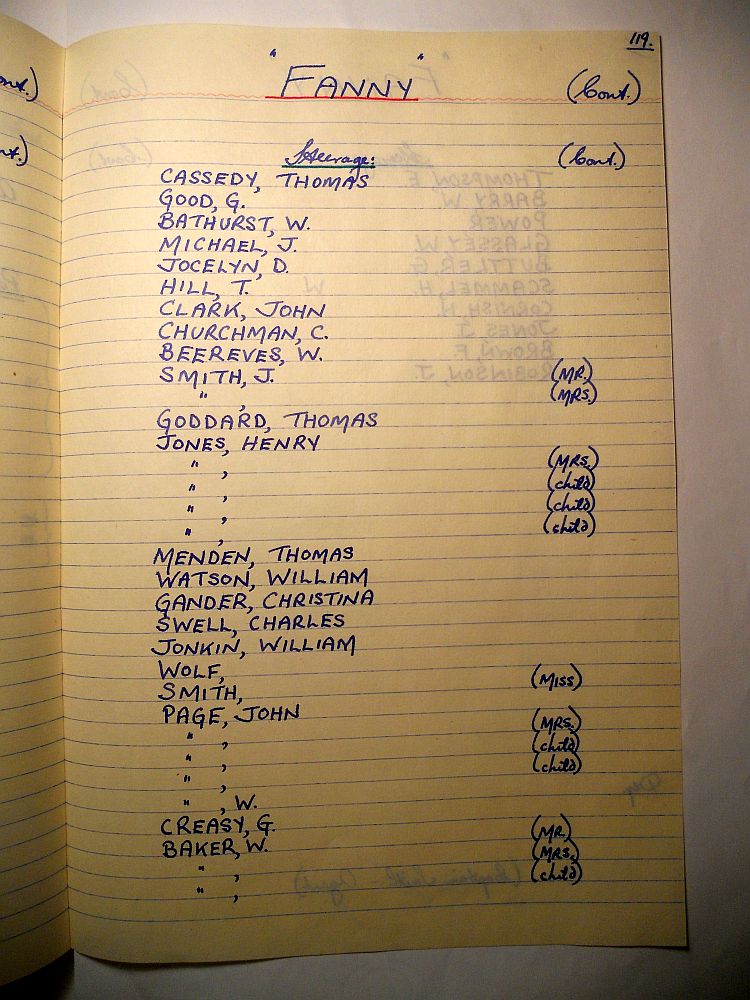 119.
"FANNY" (Cont.)
Steerage: (Cont.)
CASSEDY, THOMAS
GOOD, G.
BATHURST, W.
MICHAEL, J.
JOCELYN, D.
HILL, T.
CLARK, JOHN
CHURCHMAN, C.
BEEREVES, W.
SMITH, J. (MR.)
" , (MRS.)
GODDARD, THOMAS
JONES, HENRY
" , (MRS.)
" , (child)
" , (child)
" , (child)
MENDEN, THOMAS
WATSON, WILLIAM
GANDER, CHRISTINA
SWELL, CHARLES
JONKIN, WILLIAM
WOLF,
SMITH, (MISS)
PAGE, JOHN
" , (MRS.)
" , (child)
" , (child)
" , W.
CREASY, G.
BAKER, W. (MR.)
" , (MRS.)
" , (child)